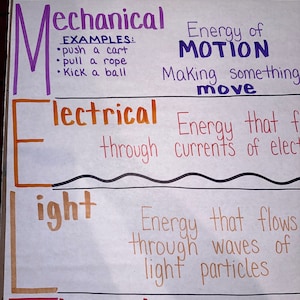 Mechanical
EXAMPLES:
• push a cart
• pull a rope
• Kick a ball
Energy of
MOTION
Making something
move
Electrical
Energy that f
through currents of elect
Light
Energy that flows
through waves of
light particles